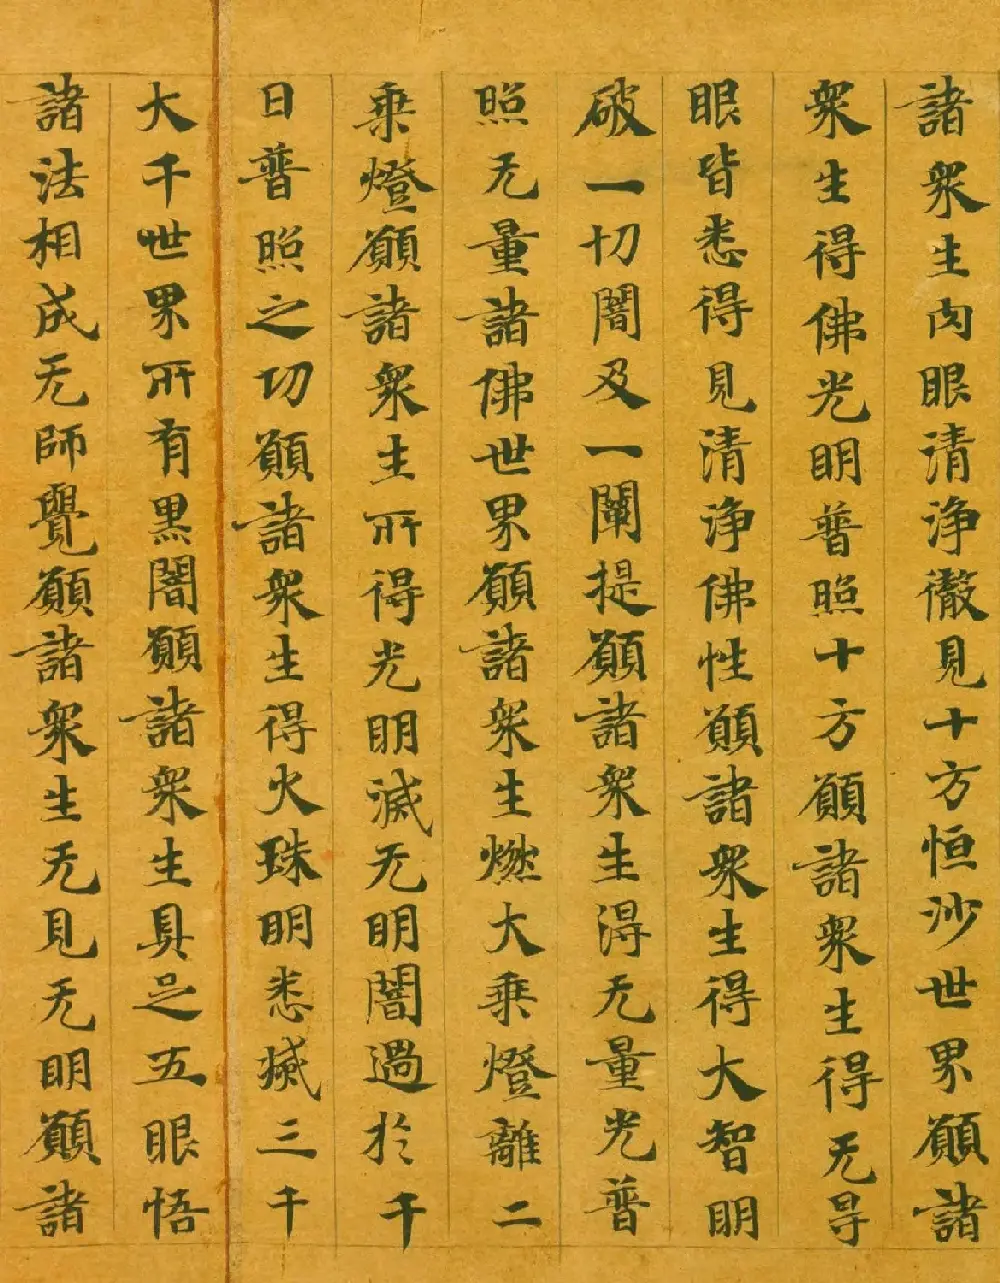 諸衆生肉眼清淨徹見十方恒沙世界願諸
衆生得佛光明普照十方願諸衆生得无㝵
眼皆悉得見清淨佛性願諸衆生得大智明
破一切闇及一闡提願諸衆生得无量光普
照无量諸佛世界願諸衆生燃大乗燈離二
乗燈願諸衆生所得光明滅无明闇過於千
日普照之功願諸衆生得火珠明悉滅三千
大千世界所有黑闇願諸衆生具足五眼悟
諸法相成无師覺願諸衆生无見无明願諸